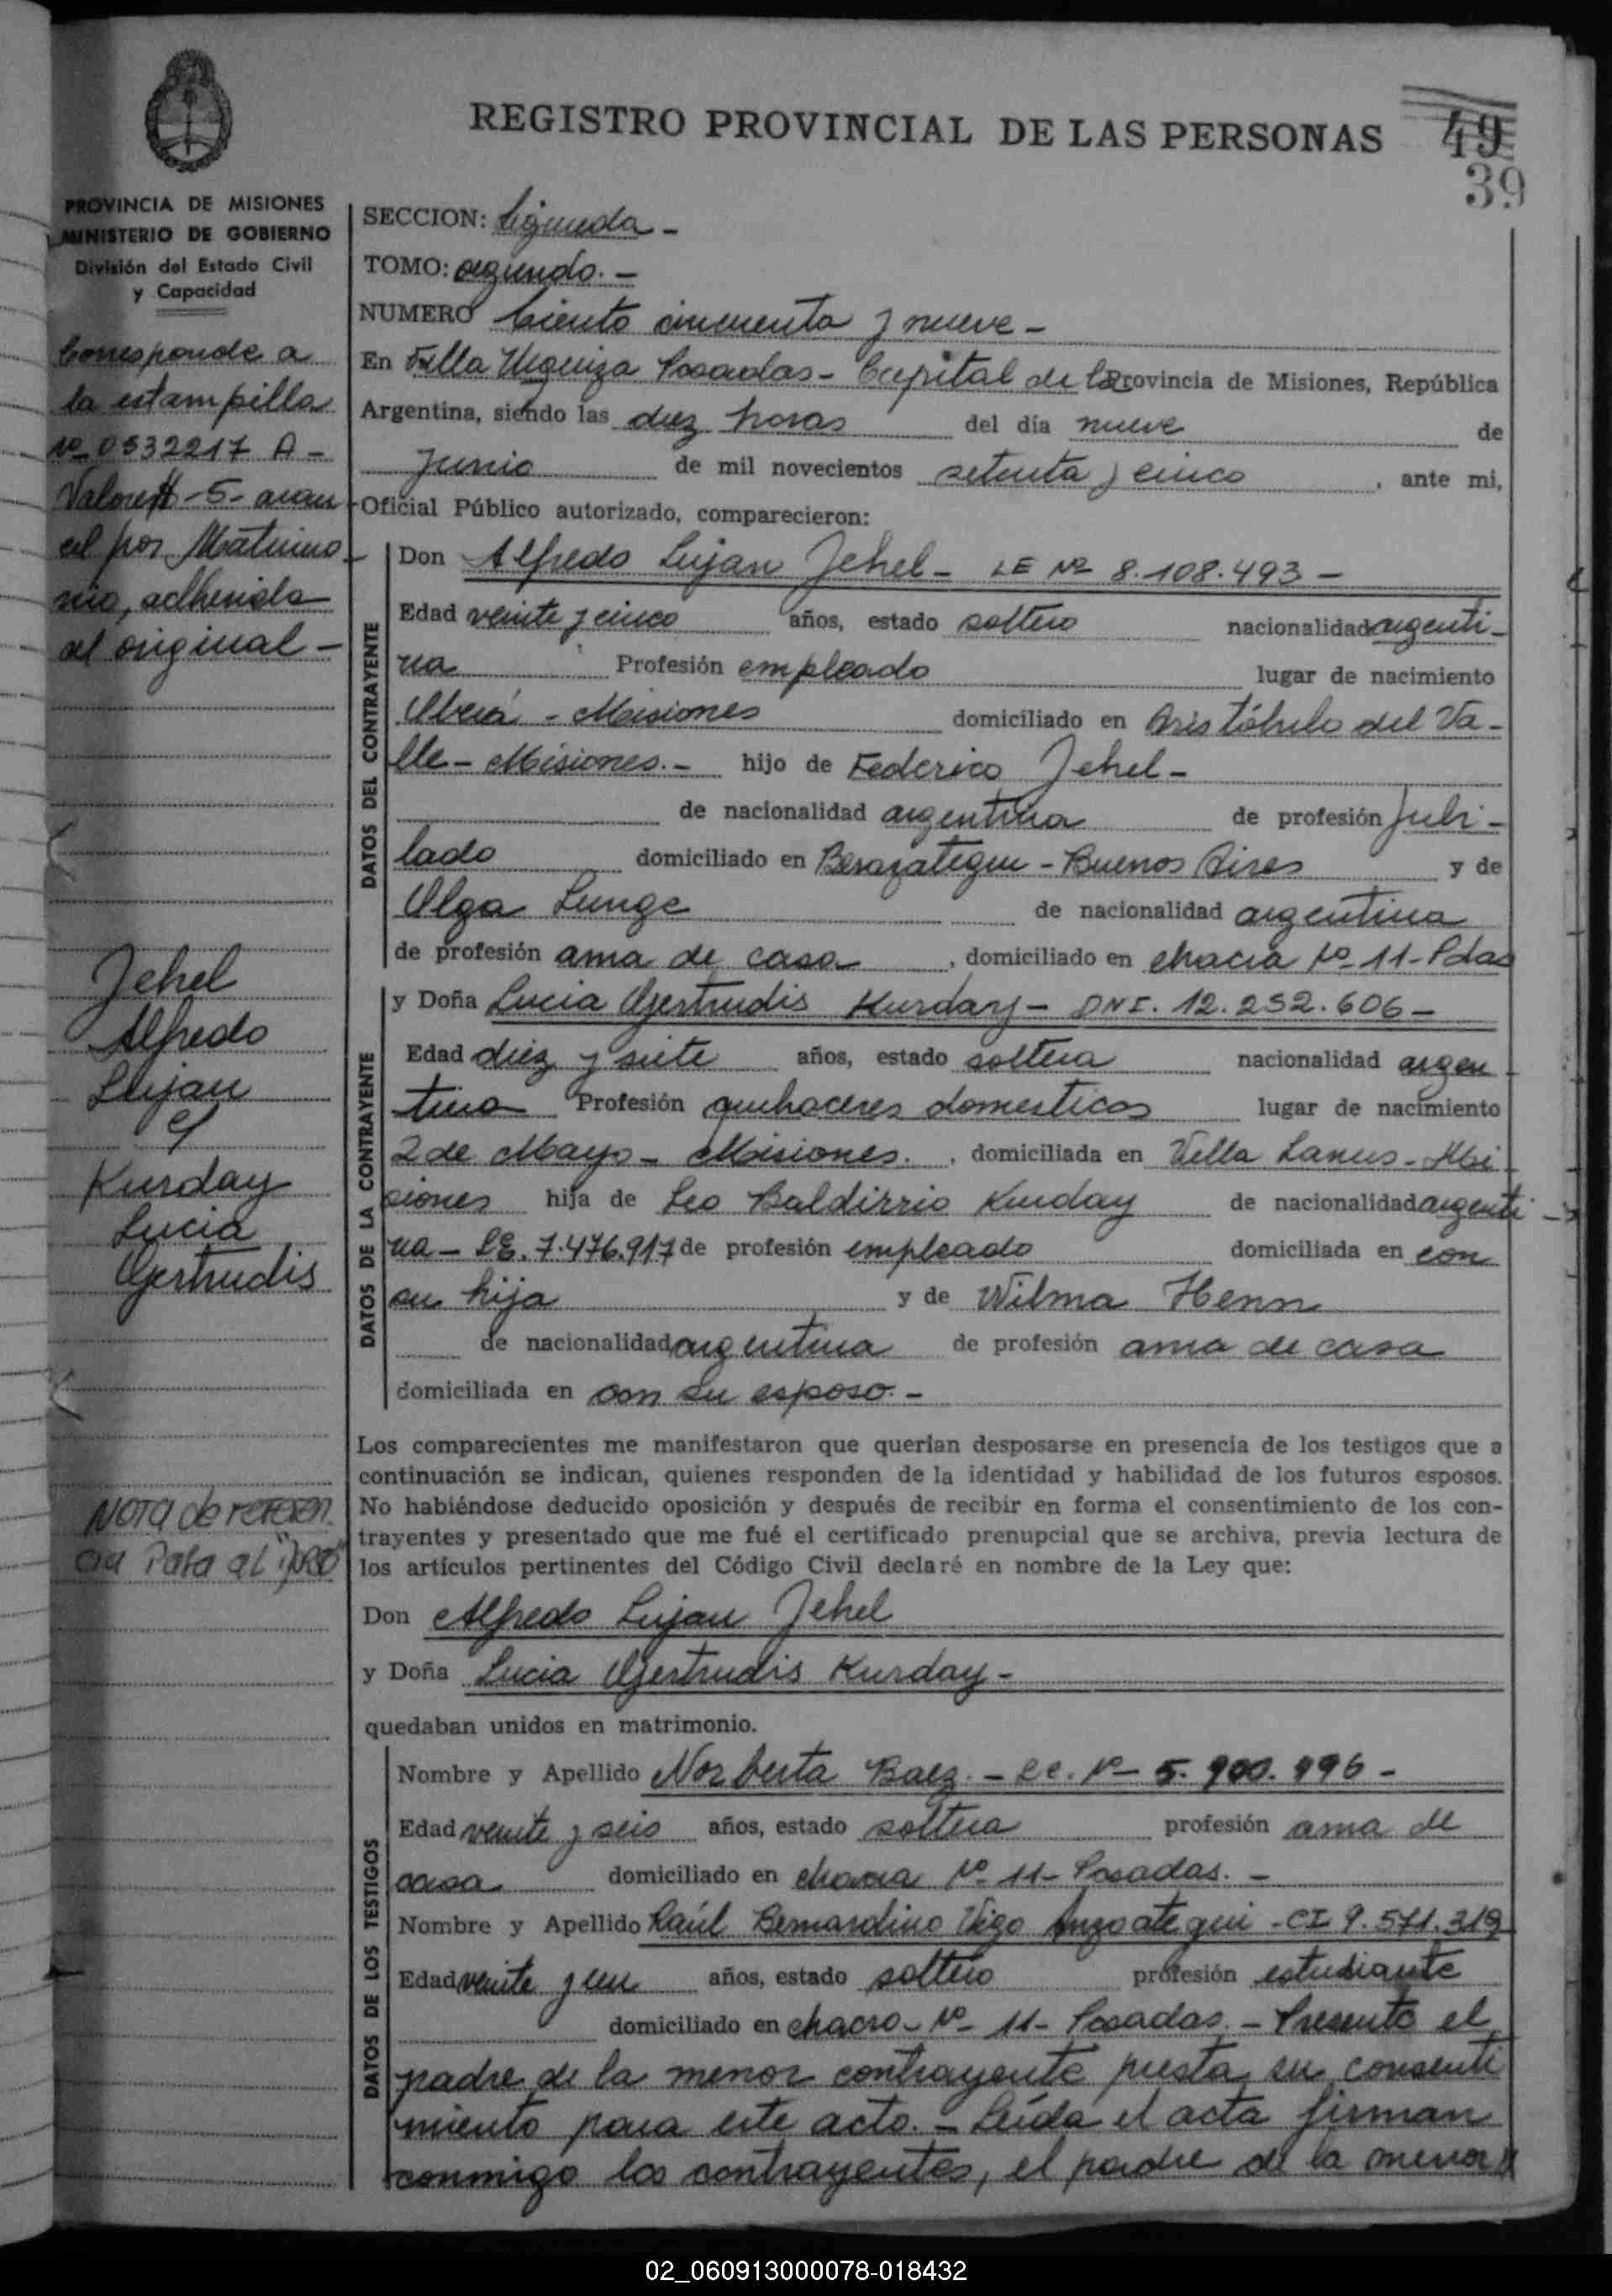 REGISTRO PROVINCIAL DE LAS PERSONAS
49
39
PROVINCIA DE MISIONES
MINISTERIO DE GOBIERNO
División del Estado Civil
y Capacidad
Corresponde a
la estampilla
Nº 0532217 A -
Valores $ -5- aran
cel por Matrimo-
nio, adherida
al original -
Jehel
Alfredo
Lujan
y
Kurday
Lucia
Gertrudis
Nota de referen
cia Pasa al
SECCION: Segunda -
TOMO: segundo. -
NUMERO Ciento cincuenta y nueve -
En Villa Urquiza Posadas - Capital de la Provincia de Misiones, República
Argentina, siendo las diez horas del día nueve de
Junio de mil novecientos setenta y cinco, ante mi,
Oficial Público autorizado, comparecieron:
DATOS DEL CONTRAYENTE
Don Alfredo Lujan Jehel - LE Nº 8.108.493 -
Edad veinte y cinco años, estado soltero nacionalidad argenti-
na Profesión empleado lugar de nacimiento
Oberá - Misiones domiciliado en Aristóbulo del Va-
lle - Misiones. - hijo de Federico Jehel -
de nacionalidad argentina de profesión Jubi-
lado domiciliado en Berazategui - Buenos Aires y de
Olga Lunge de nacionalidad argentina
de profesión ama de casa, domiciliado en chacra Nº 11 - Pdas
DATOS DE LA CONTRAYENTE
y Doña Lucia Gertrudis Kurday - DNI. 12.252.606 -
Edad diez y siete años, estado soltera nacionalidad argen
tina Profesión quehaceres domesticos lugar de nacimiento
2 de Mayo - Misiones., domiciliada en Villa Lanus - Mi
siones hija de Leo Baldirrio Kurday de nacionalidad argenti -
na - LE. 7.476.917 de profesión empleado domiciliada en con
su hija y de Wilma Henn
de nacionalidad argentina de profesión ama de casa
domiciliada en con su esposo. -
Los comparecientes me manifestaron que querían desposarse en presencia de los testigos que a
continuación se indican, quienes responden de la identidad y habilidad de los futuros esposos.
No habiéndose deducido oposición y después de recibir en forma el consentimiento de los con-
trayentes y presentado que me fué el certificado prenupcial que se archiva, previa lectura de
los artículos pertinentes del Código Civil declaré en nombre de la Ley que:
Don Alfredo Lujan Jehel
y Doña Lucia Gertrudis Kurday -
quedaban unidos en matrimonio.
DATOS DE LOS TESTIGOS
Nombre y Apellido Norberta Baez. - LC. Nº 5.900.996 -
Edad veinte y seis años, estado soltera profesión ama de
casa domiciliado en chacra Nº 11 - Posadas. -
Nombre y Apellido Raúl Bernardino Vigo Anzoategui - CI 9.571.319
Edad veinte y un años, estado soltero profesión estudiante
domiciliado en chacra - Nº - 11 - Posadas. - Presente el
padre de la menor contrayente presta su consenti
miento para este acto. - Leída el acta firman
conmigo los contrayentes, el padre de la menor //
02_060913000078-018432